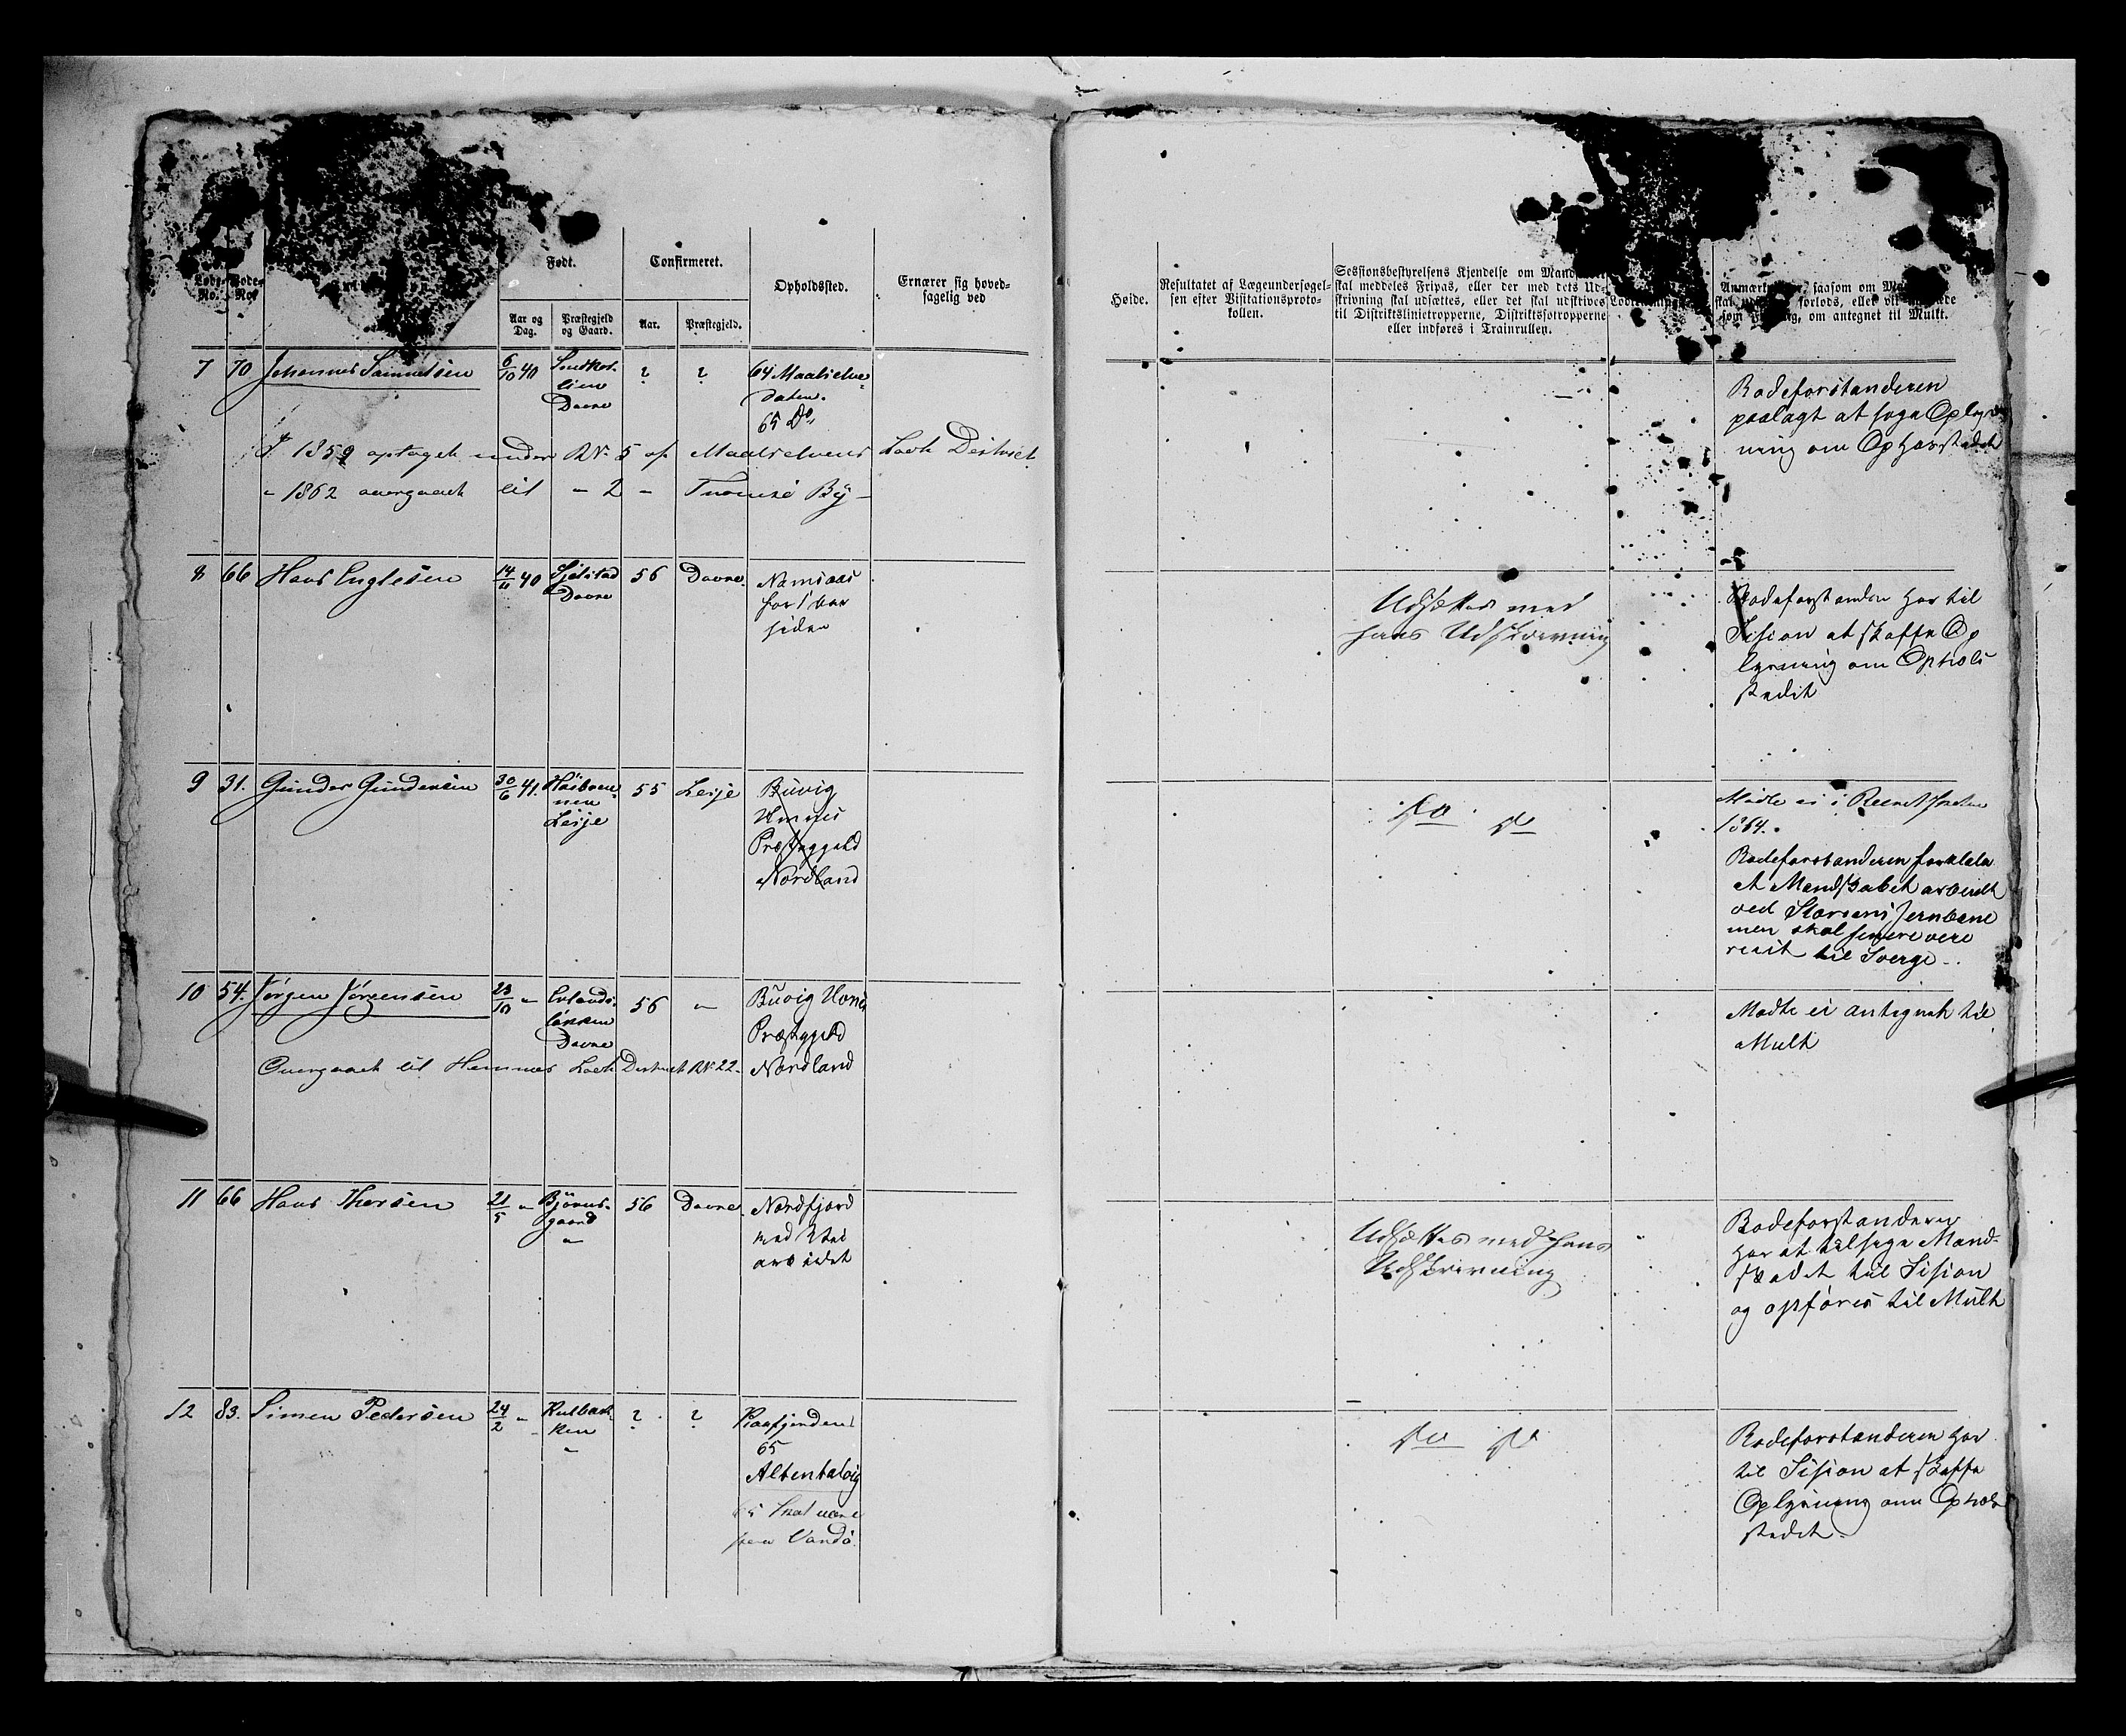 Løbe-
No.
Rode-
No.
Født.
Confirmeret.
Opholdssted.
Ernærer sig hoved-
sagelig ved
Aar og
Dag.
Præstegjeld
og Gaard.
Aar.
Præstegjeld.
7 70 Johannes Samuelsen 6/10 40
Dovre
? ?
64 Maalselv
dalen.
65 Do
I 1859 optaget under RN. 5 af Maalselvens Lods District
" 1862 overgaaet til " 2 " Tromsø By
8 66 Hans Englesen 14/11 40 Dovre 56 Dovre.
Namsaas
for 1 Aar
siden
9 31. Gunder Gundersen 30/6 41. Lesje 55 Lesje
Buvig
Præstegjeld
Nordland
10 54. Jørgen Jørgensen 23/10 "
løkken
Dovre
56 "
Buvig
Præstegjeld
Nordland
Overgaaet til Hemnes Lods District RN. 22.
11 66 Hans Thorsen 21/5 " Bjørns-
gaard
"
56 Dovre.
Nordfjord
med
arbeidet
12 83. Simen Pedersen 24/2 " Kulbak-
ken
"
? ?
Kaafjorden
65
Altentalvig
65 skal være
paa Vardø.
Høide.
Resultatet af Lægeundersøgel-
sen efter Visitationsproto-
kollen.
Sessionsbestyrelsens Kjendelse om
skal meddeles Fripas, eller der med dets Ud-
skrivning skal udsættes, eller det skal udskrives
til Distriktslinietropperne, Distriktsfotropperne
eller indføres i Trainrullen.
saasom om
skal forlods, eller
som om antegnet til Mulkt.
Rodeforstanderen
paalagt at søge Oplys
ning om Opholdsstedet
Udsættes med
hans Udskrivning
Rodeforstanderen har til
Sision at skaffe Op
lysning om Opholds
stedet
Do Do
Mødte ei i
1864.
Rodeforstanderen forklarer
at Mandskabet arbeidet
ved Størens Jernbane
men skal senere være
reist til Sverge.
Mødte ei antegnet til
Mulkt
Udsættes med hans
Udskrivning
Rodeforstanderen
har at tilsige Mand-
skabet til Sision
og opføres til Mulkt
Do Do
Rodeforstanderen har
til Sision at skaffe
Oplysning om Opholds
stedet.